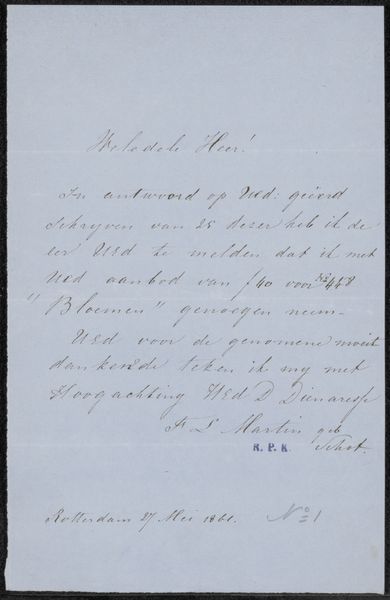 Weledele Heer!
In antwoord op UEd: geëerd
schryven van 25 dezer heb ik de
eer UEd te melden dat ik met
UEd aanbod van f 40 voor No 448
"Bloemen" genoegen neem.
UEd voor de genomene moeite
dankende teken ik my met
Hoogachting UEd D Dienaresse
F L Martin geb
R. P. K.
Schot.
Rotterdam 27 Mei 1861.
No 1